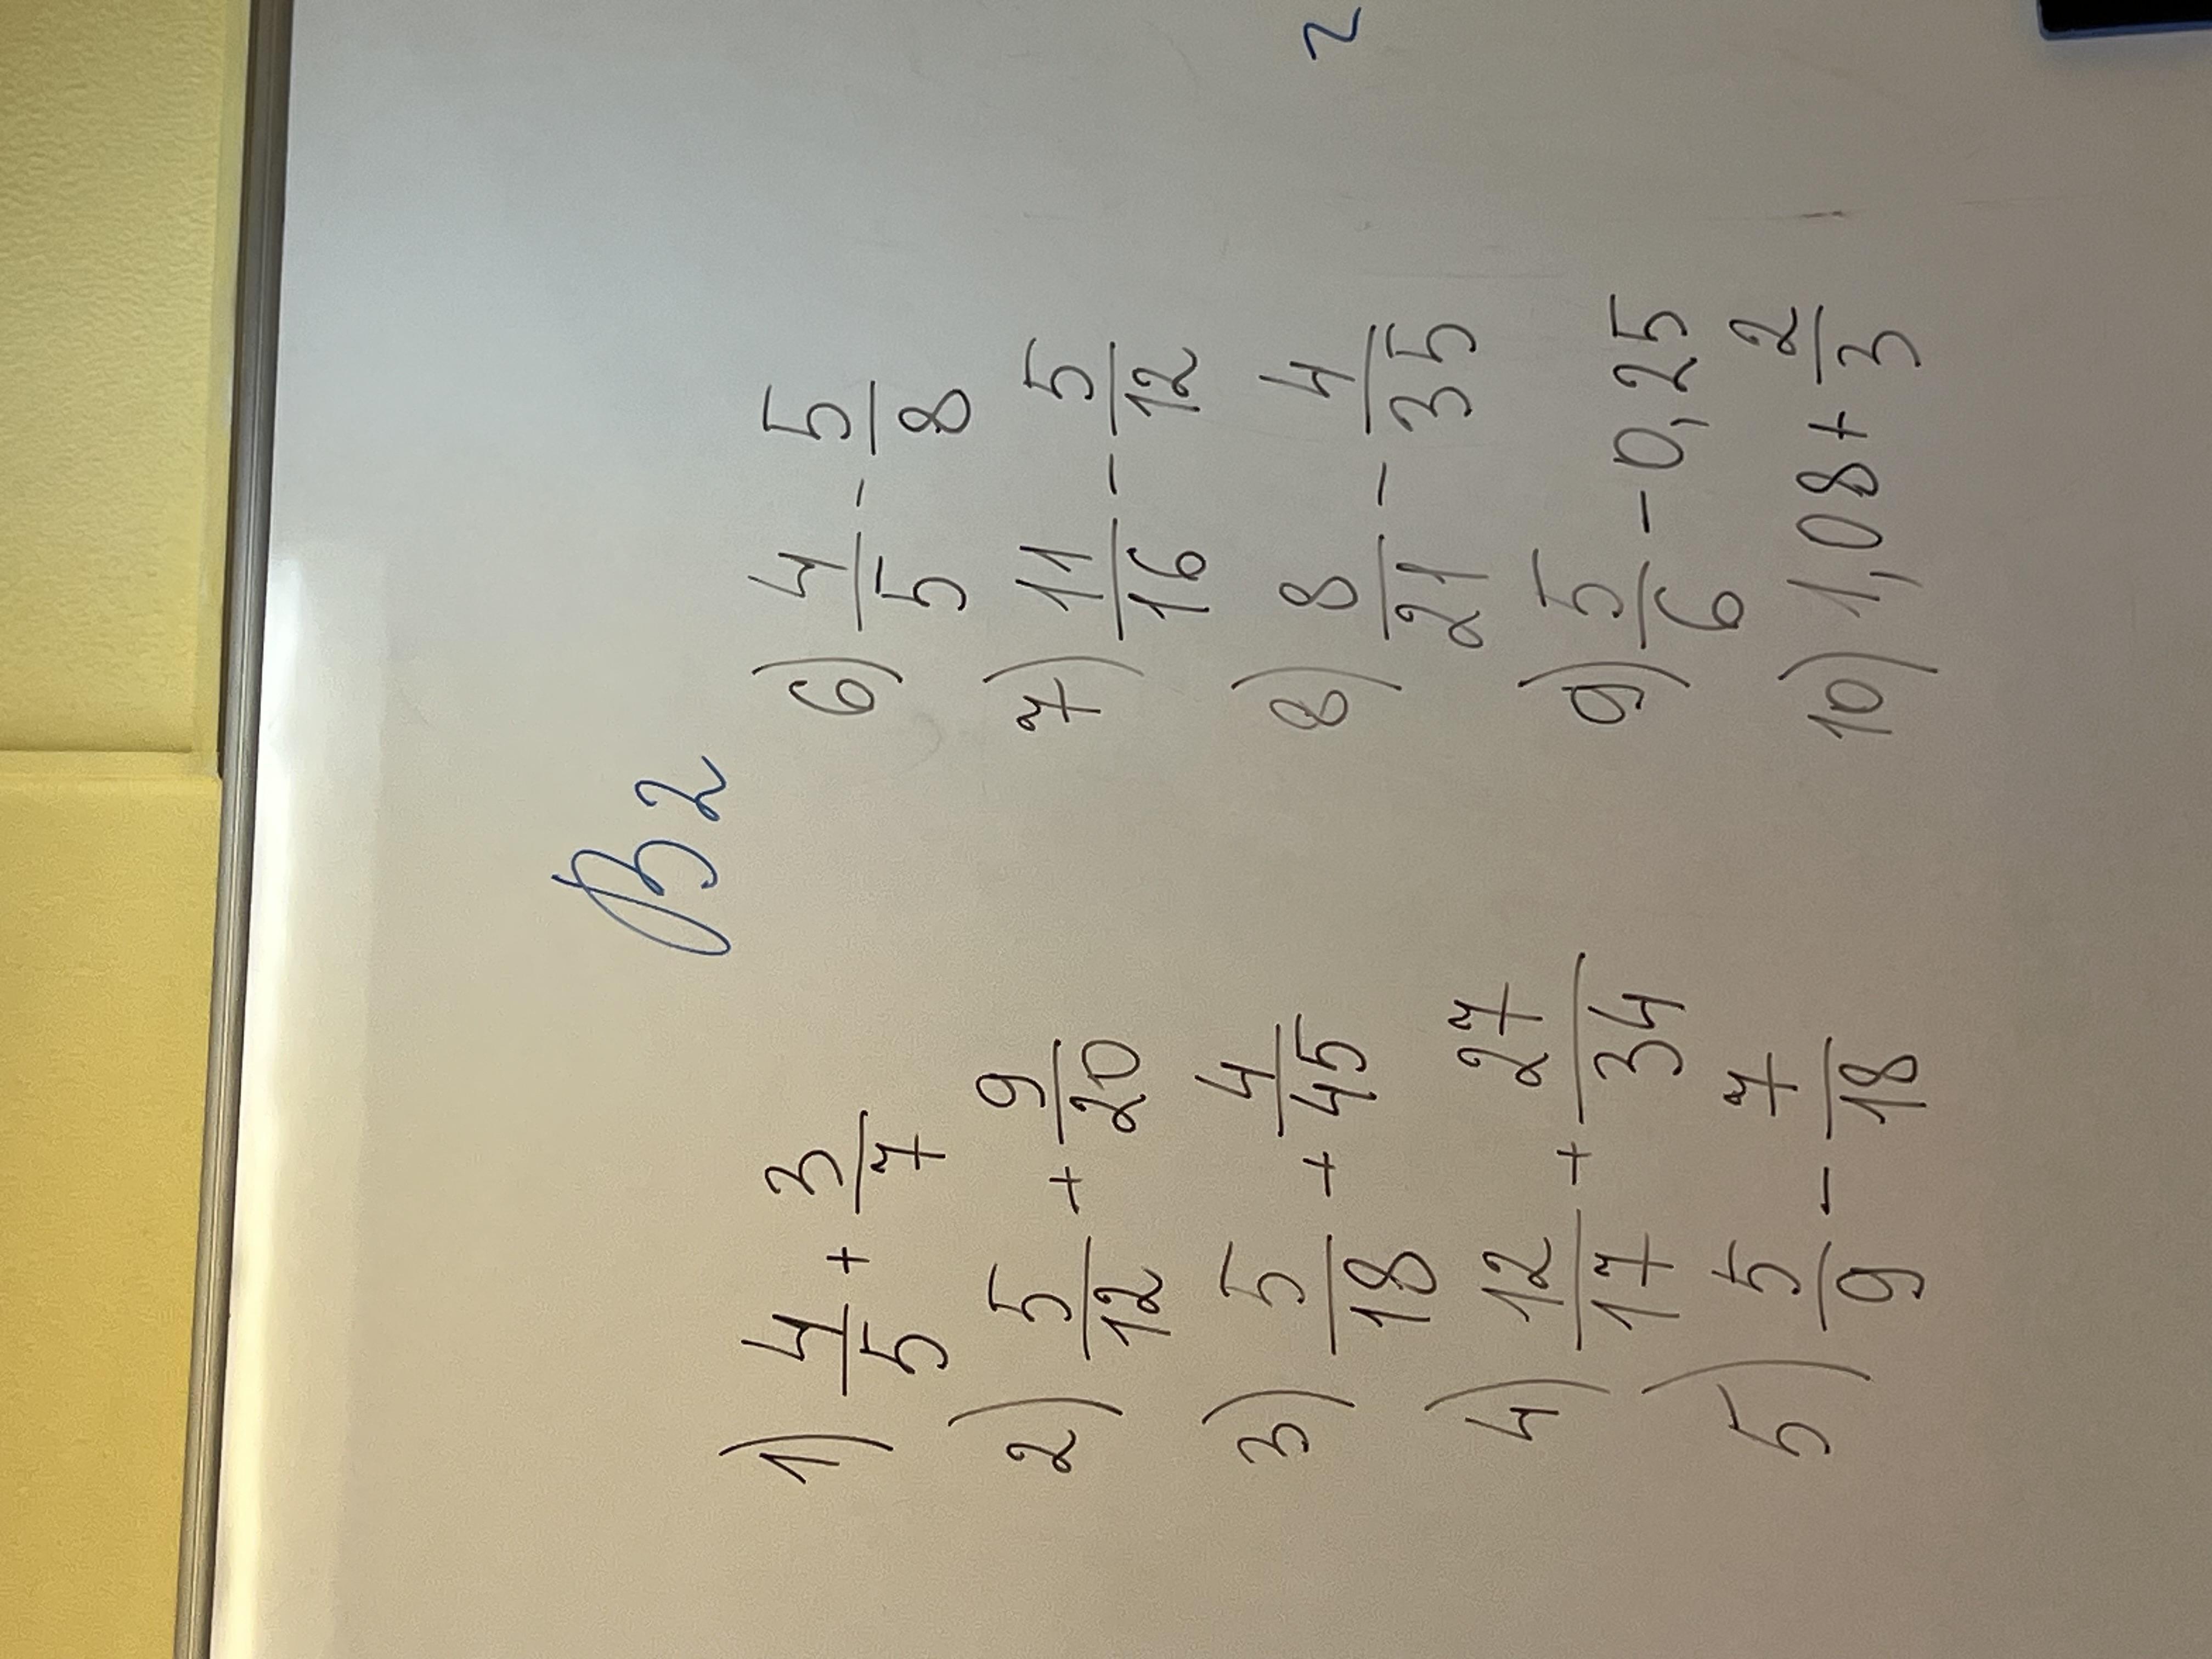 B2
1) 4/5 + 3/7
2) 5/12 + 9/20
3) 5/18 + 4/45
4) 12/17 + 27/34
5) 5/9 - 7/18
6) 4/5 - 5/8
7) 11/16 - 5/12
8) 8/21 - 4/35
9) 5/6 - 0,25
10) 1,08 + 2/3